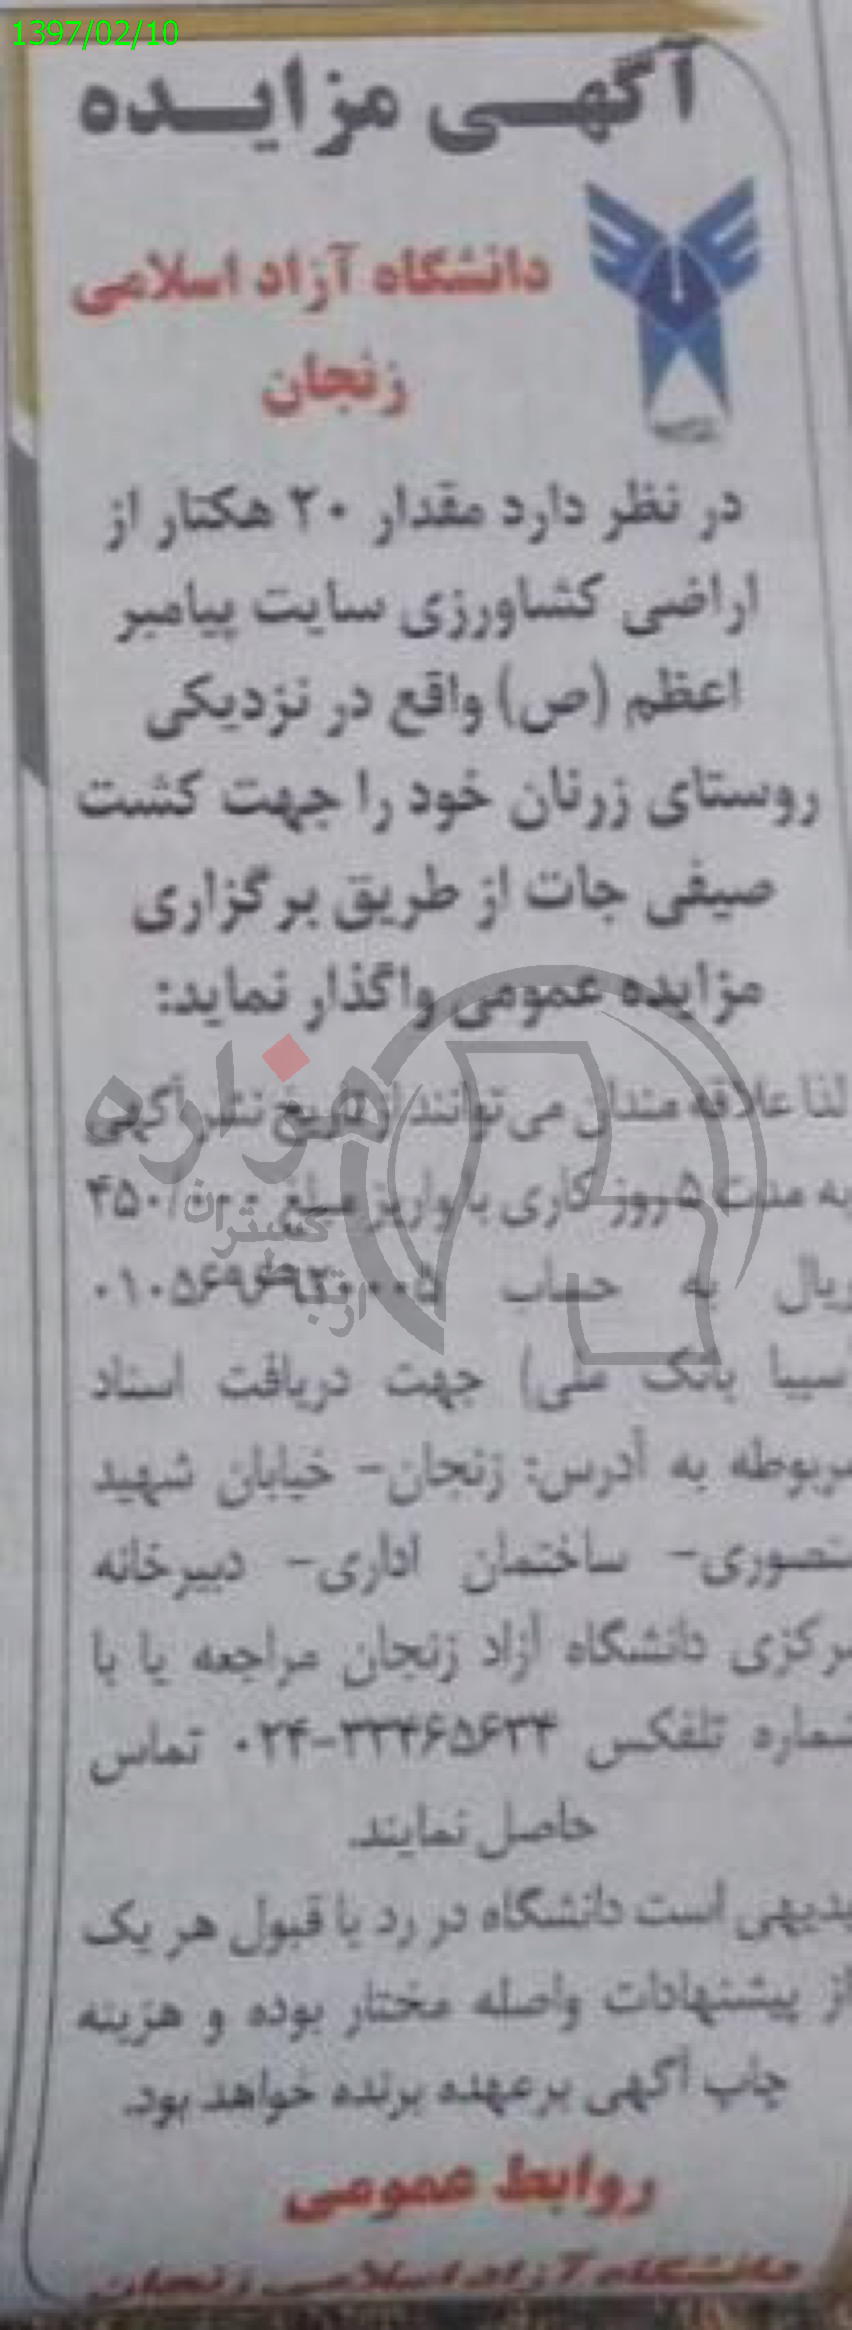 1397/02/10
آگهی مزایده
دانشگاه آزاد اسلامی
زنجان
در نظر دارد مقدار ۲۰ هکتار از
اراضی کشاورزی سایت پیامبر
اعظم (ص) واقع در نزدیکی
روستای زرنان خود را جهت کشت
صیفی جات از طریق برگزاری
مزایده عمومی واگذار نماید:
لذا علاقه مندان می توانند از تاریخ نشر آگهی
به مدت ۵ روز کاری با واریز مبلغ ۴۵۰/۰۰۰
ریال به حساب
سیبا بانک ملی) جهت دریافت اسناد
مربوطه به آدرس: زنجان- خیابان شهید
منصوری- ساختمان اداری- دبیرخانه
مرکزی دانشگاه آزاد زنجان مراجعه یا با
شماره تلفکس ۳۳۴۶۵۶۳۴-۰۲۴ تماس
حاصل نمایند.
بدیهی است دانشگاه در رد یا قبول هر یک
از پیشنهادات واصله مختار بوده و هزینه
چاپ آگهی برعهده برنده خواهد بود.
روابط عمومی
دانشگاه آزاد اسلامی زنجان
هزاره
گستران
ارتباط